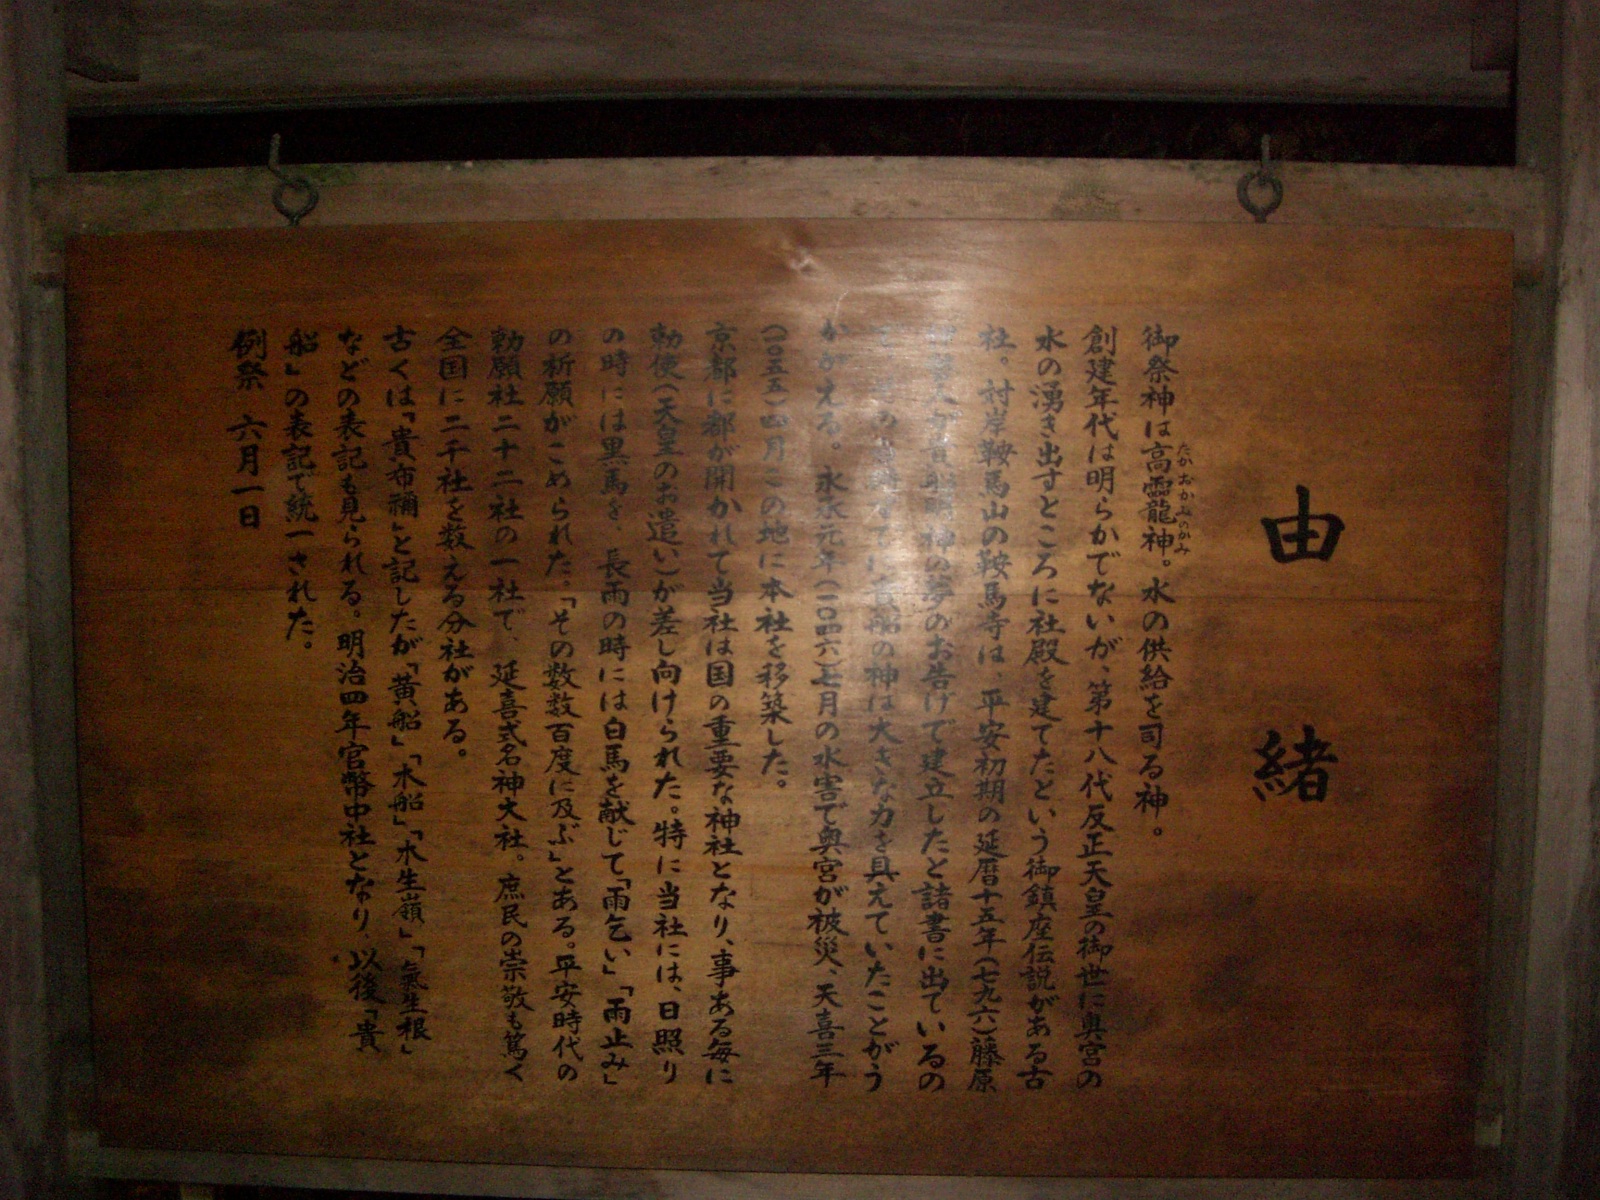 由緒
御祭神は高龗龍神。水の供給を司る神。
たかおかみのかみ
創建年代は明らかでないが、第十八代反正天皇の御世に奥宮の
水の湧き出すところに社殿を建てたという御鎮座伝説がある古
社。対岸鞍馬山の鞍馬寺は、平安初期の延暦十五年(七九六)藤原
が貴船明神の夢のお告げで建立したと諸書に出ているの
貴船の神は大きな力を具えていたことがう
かがえる。永承元年(一〇四六)七月の水害で奥宮が被災、天喜三年
(一〇五五)四月この地に本社を移築した。
京都に都が開かれて当社は国の重要な神社となり、事ある毎に
勅使(天皇のお遣い)が差し向けられた。特に当社には、日照り
の時には黒馬を、長雨の時には白馬を献じて「雨乞い」「雨止み」
の祈願がこめられた。「その数数百度に及ぶ」とある。平安時代の
勅願社二十二社の一社で、延喜式名神大社。庶民の崇敬も篤く
全国に二千社を数える分社がある。
古くは「貴布禰」と記したが「黄船」「木船」「木生嶺」「氣生根」
などの表記も見られる。明治四年官幣中社となり、以後「貴
船」の表記で統一された。
例祭 六月一日